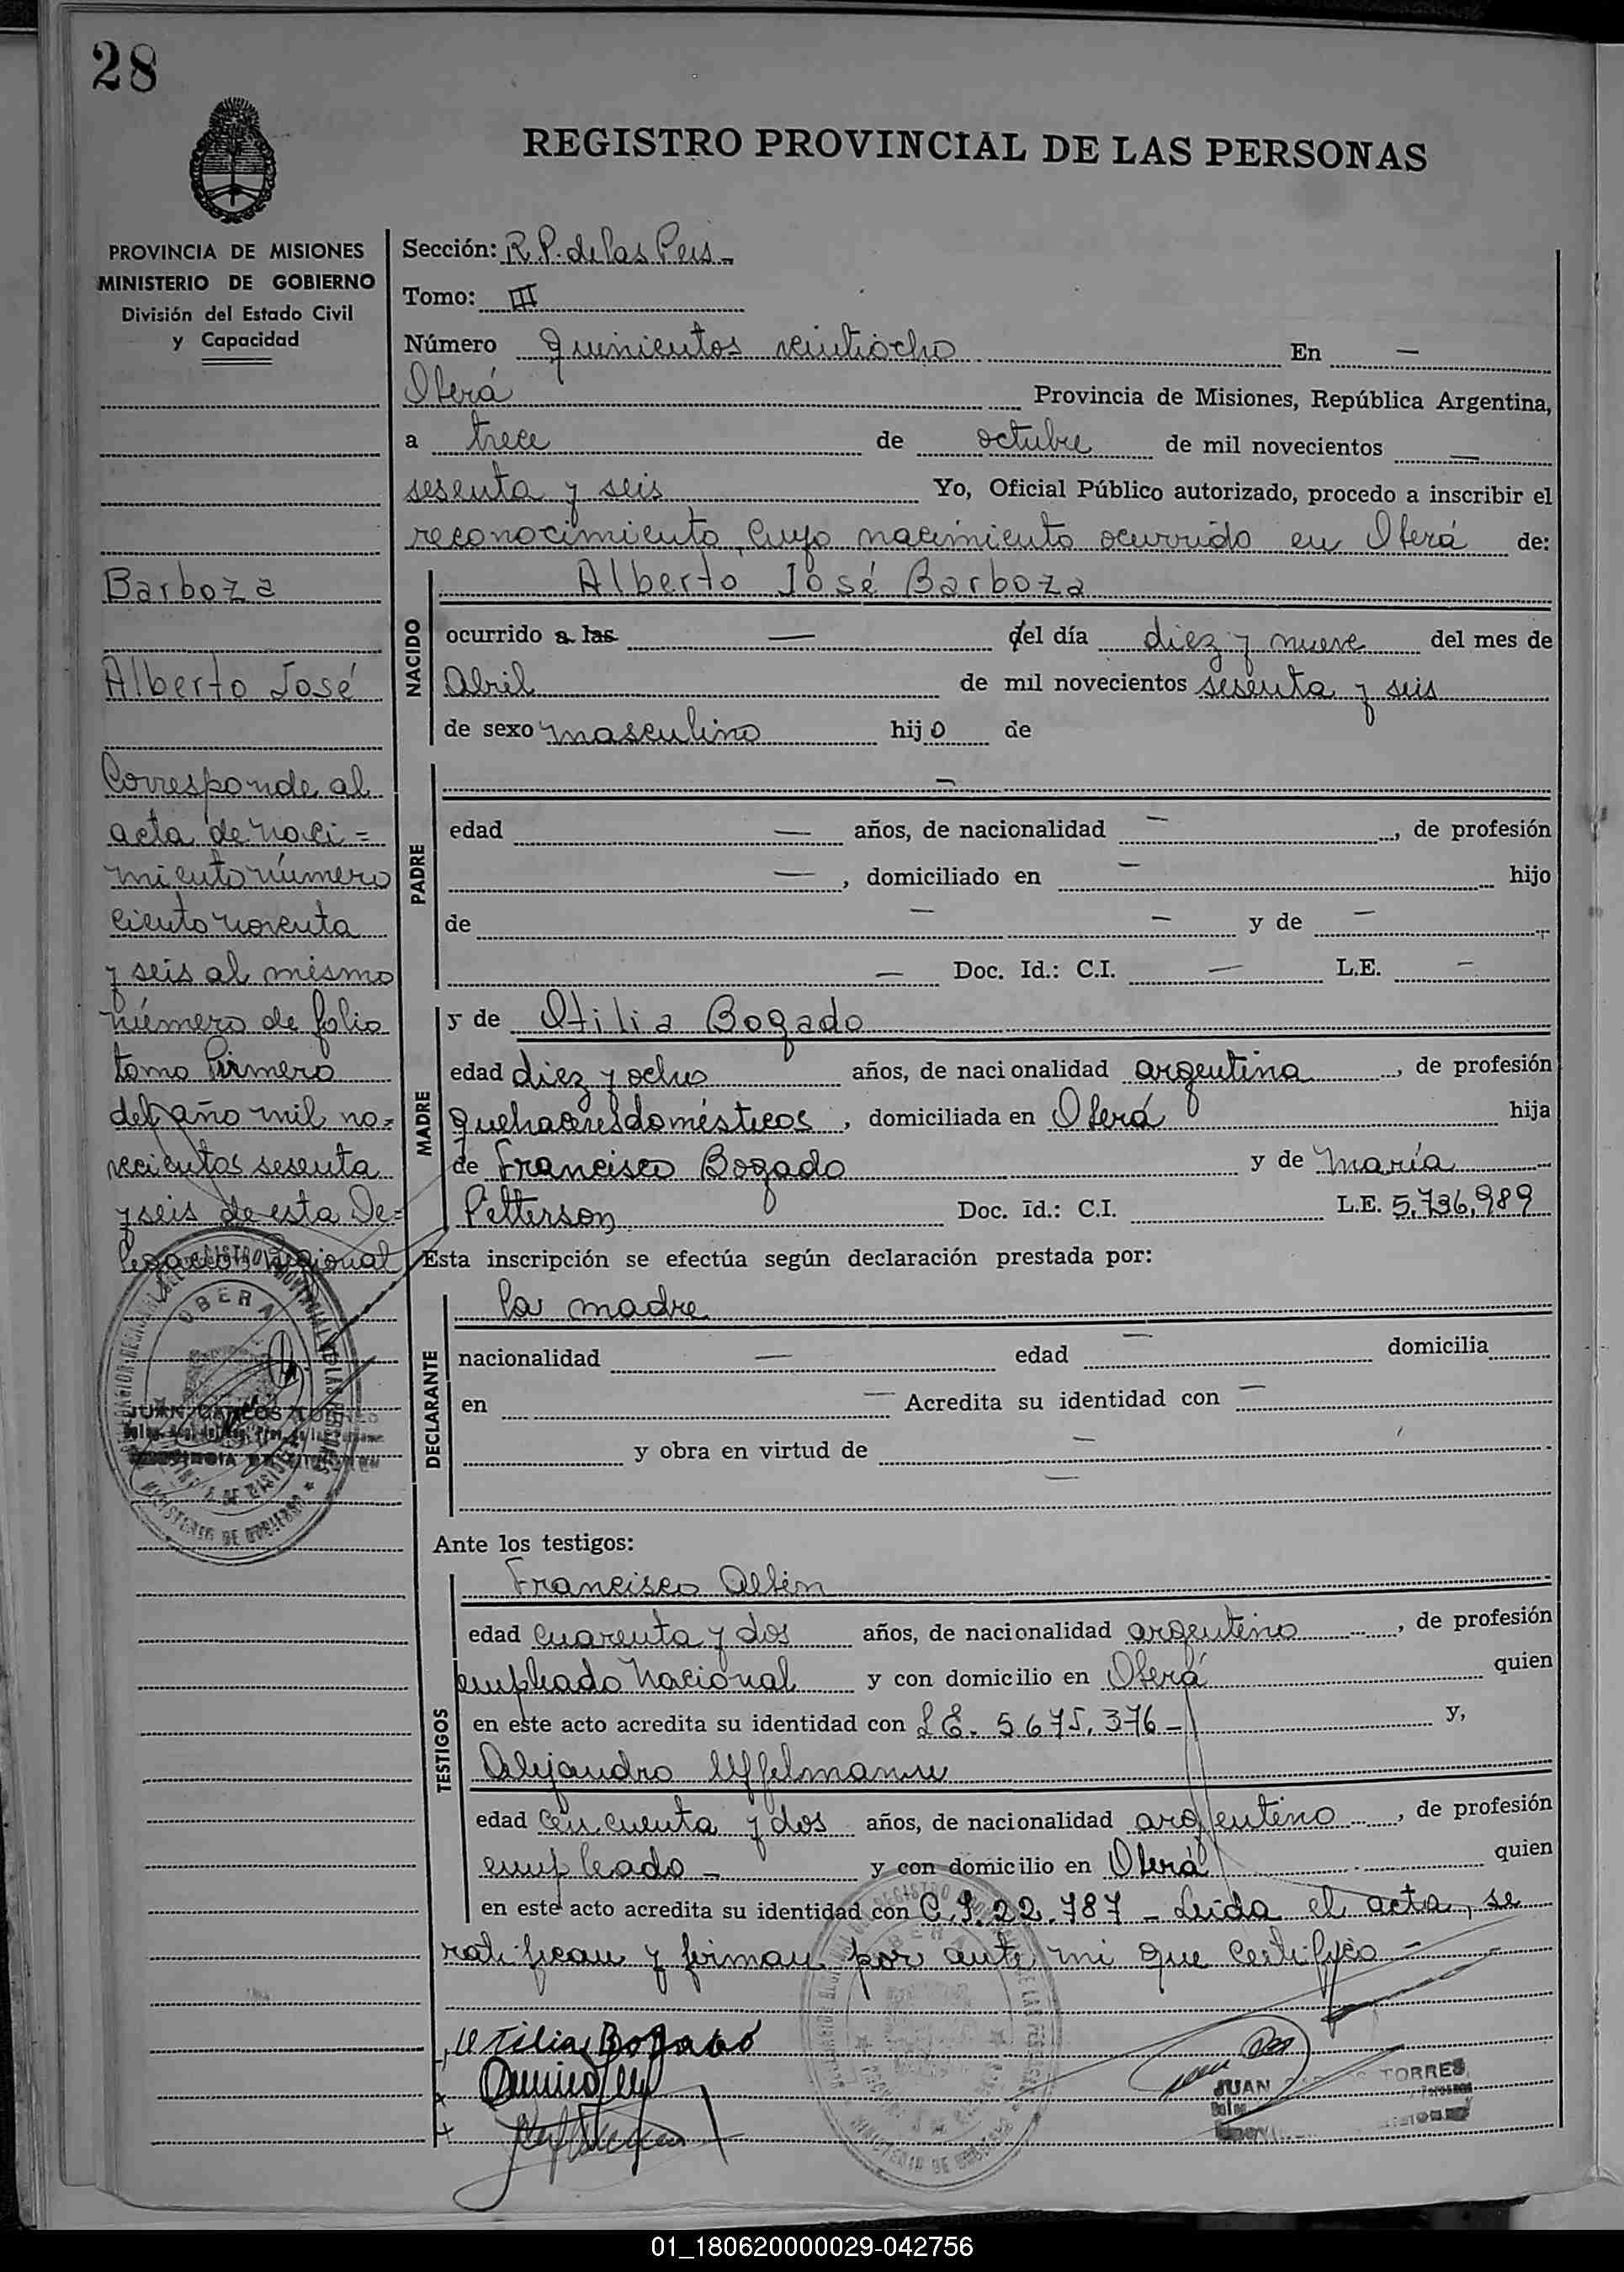 28
REGISTRO PROVINCIAL DE LAS PERSONAS
PROVINCIA DE MISIONES
MINISTERIO DE GOBIERNO
División del Estado Civil
y Capacidad
Barboza
Alberto José
Corresponde al
acta de naci=
miento número
ciento noventa
y seis al mismo
número de folio
tomo Primero
del año mil no=
vecientos sesenta
y seis de esta De=
legación Regional
OBERA
MINISTERIO DE GOBIERNO
JUAN CARLOS TORRES
Sección: R.P. de las Pers –
Tomo: III
Número quinientos veintiocho En —
Oberá Provincia de Misiones, República Argentina,
a trece de octubre de mil novecientos —
sesenta y seis Yo, Oficial Público autorizado, procedo a inscribir el
reconocimiento cuyo nacimiento ocurrido en Oberá de:
NACIDO
Alberto José Barboza
ocurrido a las — del día diez y nueve del mes de
Abril de mil novecientos sesenta y seis
de sexo masculino hijo de
PADRE
—
edad — años, de nacionalidad —, de profesión
—, domiciliado en — hijo
de — — y de —
— Doc. Id.: C.I. — L.E. —
MADRE
y de Otilia Bogado
edad diez y ocho años, de nacionalidad argentina, de profesión
quehaceres domésticos, domiciliada en Oberá hija
de Francisco Bogado y de María
Petterson Doc. Id.: C.I. L.E. 5.736,989
Esta inscripción se efectúa según declaración prestada por:
DECLARANTE
la madre
nacionalidad — edad — domicilia
en — Acredita su identidad con —
y obra en virtud de —
—
Ante los testigos:
TESTIGOS
Francisco Albin
edad cuarenta y dos años, de nacionalidad argentino, de profesión
empleado Nacional y con domicilio en Oberá quien
en este acto acredita su identidad con L.E. 5.675.376 – y,
Alejandro Uffelmann
edad cincuenta y dos años, de nacionalidad argentino, de profesión
empleado – y con domicilio en Oberá quien
en este acto acredita su identidad con C.I. 22.787 – Leida el acta, se
ratifican y firman por ante mi que certifico –
Otilia Bogado
JUAN TORRES
OBERA
MINISTERIO DE GOBIERNO
01_180620000029-042756